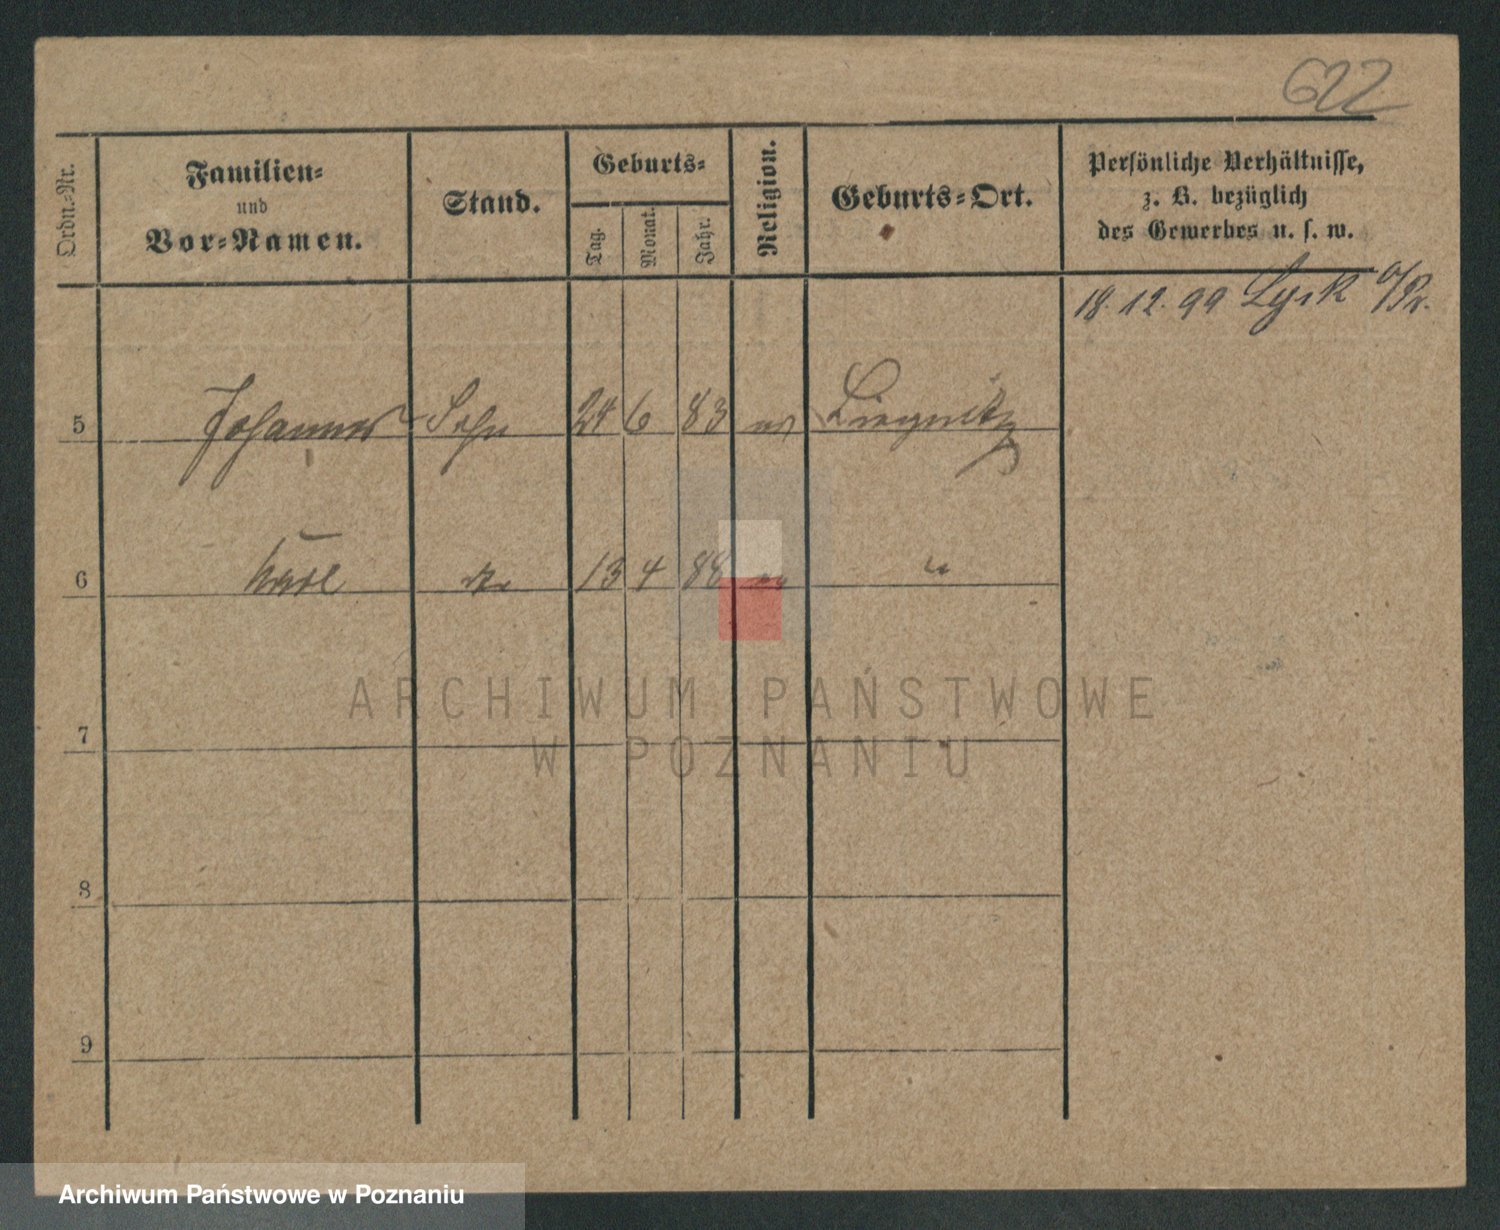 622
Ordn.-Nr.
Familien-
und
Vor-Namen.
Stand.
Geburts-
Tag.
Monat.
Jahr.
Religion.
Geburts-Ort.
Persönliche Verhältnisse,
z. B. bezüglich
des Gewerbes u. s. w.
18.12.99 Lyck O/Pr.
5 Johannes Sohn 24 6 83 ev Liegnitz
6 Karl do 13 4 88 ev "
7
8
9
ARCHIWUM PAŃSTWOWE
W POZNANIU
Archiwum Państwowe w Poznaniu